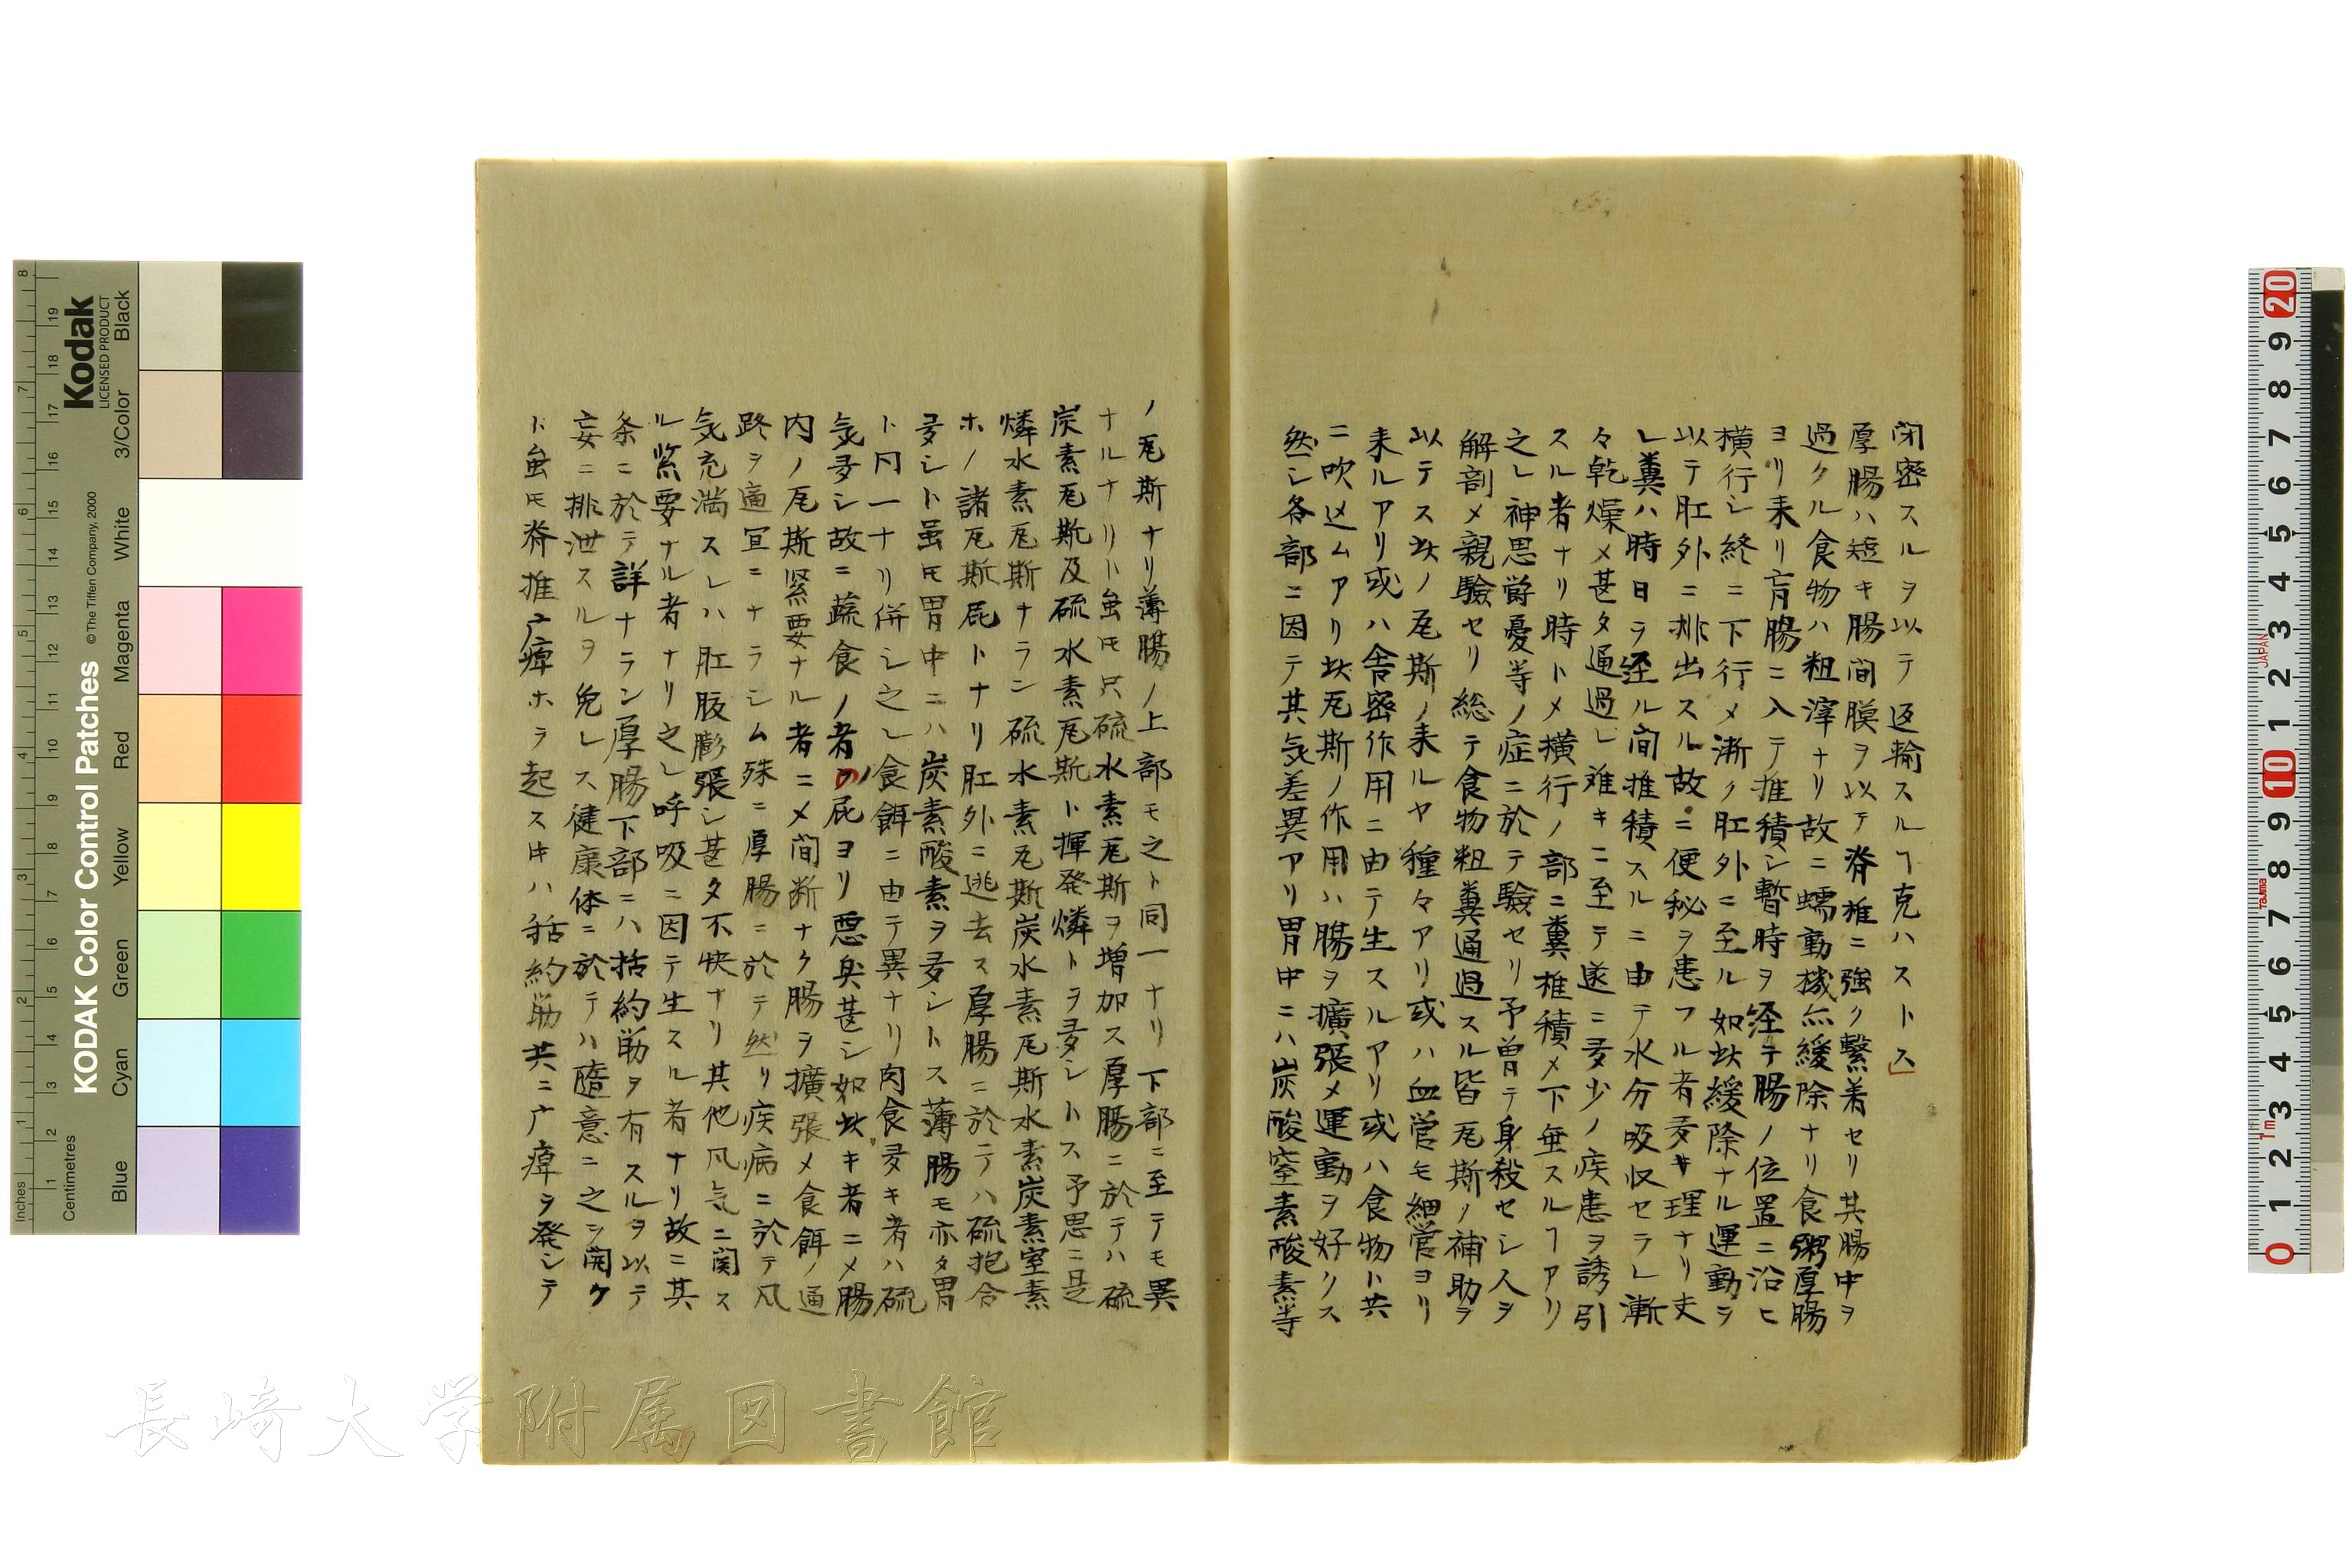 閉密スルヲ以テ返輸スルヿ克ハストス」
厚腸ハ短キ腸間膜ヲ以テ脊椎ニ強ク繋着セリ其腸中ヲ
過クル食物ハ粗滓ナリ故ニ蠕動機亦緩除ナリ食粥厚腸
ヨリ来リ盲腸ニ入テ推積シ暫時ヲ経テ腸ノ位置ニ沿ヒ
横行シ終ニ下行メ漸ク肛外ニ至ル如此緩除ナル運動ヲ
以テ肛外ニ排出スル故ニ便秘ヲ患フル者多キ理ナリ夫
レ糞ハ時日ヲ経ル間推積スルニ由テ水分吸収セラレ漸
々乾燥メ甚タ通過シ難キニ至テ遂ニ多少ノ疾患ヲ誘引
スル者ナリ時トメ横行ノ部ニ糞椎積メ下垂スルヿアリ
之レ神思欝憂等ノ症ニ於テ験セリ予曽テ身殺セシ人ヲ
解剖メ親驗セリ総テ食物粗糞通過スル皆瓦斯ノ補助ヲ
以テス此ノ瓦斯ノ来ルヤ種々アリ或ハ血管モ細管ヨリ
来ルアリ或ハ舎密作用ニ由テ生スルアリ或ハ食物ト共
ニ吹込ムアリ此瓦斯ノ作用ハ腸ヲ擴張メ運動ヲ好クス
然シ各部ニ因テ其気差異アリ胃中ニハ炭酸窒素酸素等
ノ瓦斯ナリ薄腸ノ上部モ之ト同一ナリ下部ニ至テモ異
ナルナリト虽モ只硫水素瓦斯ヲ増加ス厚腸ニ於テハ硫
炭素瓦斯及硫水素瓦斯ト揮発燐トヲ多シトス予思ニ是
燐水素瓦斯ナラン硫水素瓦斯炭水素瓦斯水素炭素室素
ホノ諸瓦斯屁トナリ肛外ニ逃去ス厚腸ニ於テハ硫抱合
多シト虽モ胃中ニハ炭素酸素ヲ多シトス薄腸モ亦タ胃
ト同一ナリ併シ之レ食餌ニ由テ異ナリ肉食多キ者ハ硫
気多シ故ニ蔬食ノ者ノ屁ヨリ悪臭甚シ如此キ者ニメ腸
内ノ瓦斯緊要ナル者ニメ間断ナク腸ヲ擴張メ食餌ノ通
路ヲ適宜ニナラシム殊ニ厚腸ニ於テ然リ疾病ニ於テ凡
気充満スレハ肛腹膨張シ甚タ不快ナリ其他凡気ニ関ス
ル緊要ナル者ナリ之レ呼吸ニ因テ生スル者ナリ故ニ其
条ニ於テ詳ナラン厚腸下部ニハ括約筋ヲ有スルヲ以テ
妄ニ排泄スルヲ免レス健康体ニ於テハ随意ニ之ヲ開ケ
ト虽モ脊推广痺ホヲ起スキハ括約筋共ニ广痺ヲ発シテ
KODAK Color Control Patches
© The Tiffen Company, 2000
Kodak
LICENSED PRODUCT
Inches
Centimetres
Blue Cyan Green Yellow Red Magenta White 3/Color Black
長崎大学附属図書館
JAPAN
Tajima